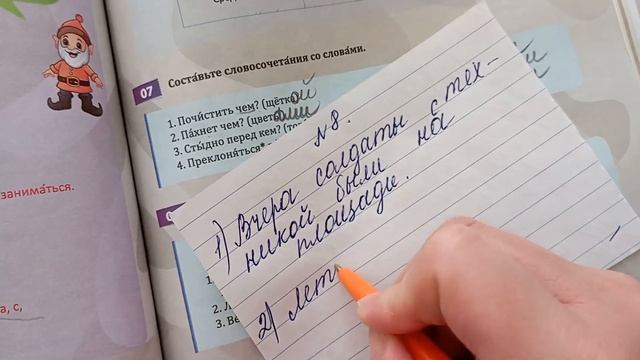 07
Соста́вьте словосочета́ния со слова́ми.
1. Почи́стить чем? (щётк ой
2. Па́хнет чем? (цвет ами
3. Сты́дно перед кем? (то
4. Преклоня́ться*
занима́ться.
а, с,
2. Л
3. Ве
№8.
1) Вчера солдаты с тех-
никой были на
площади.
2) Лет